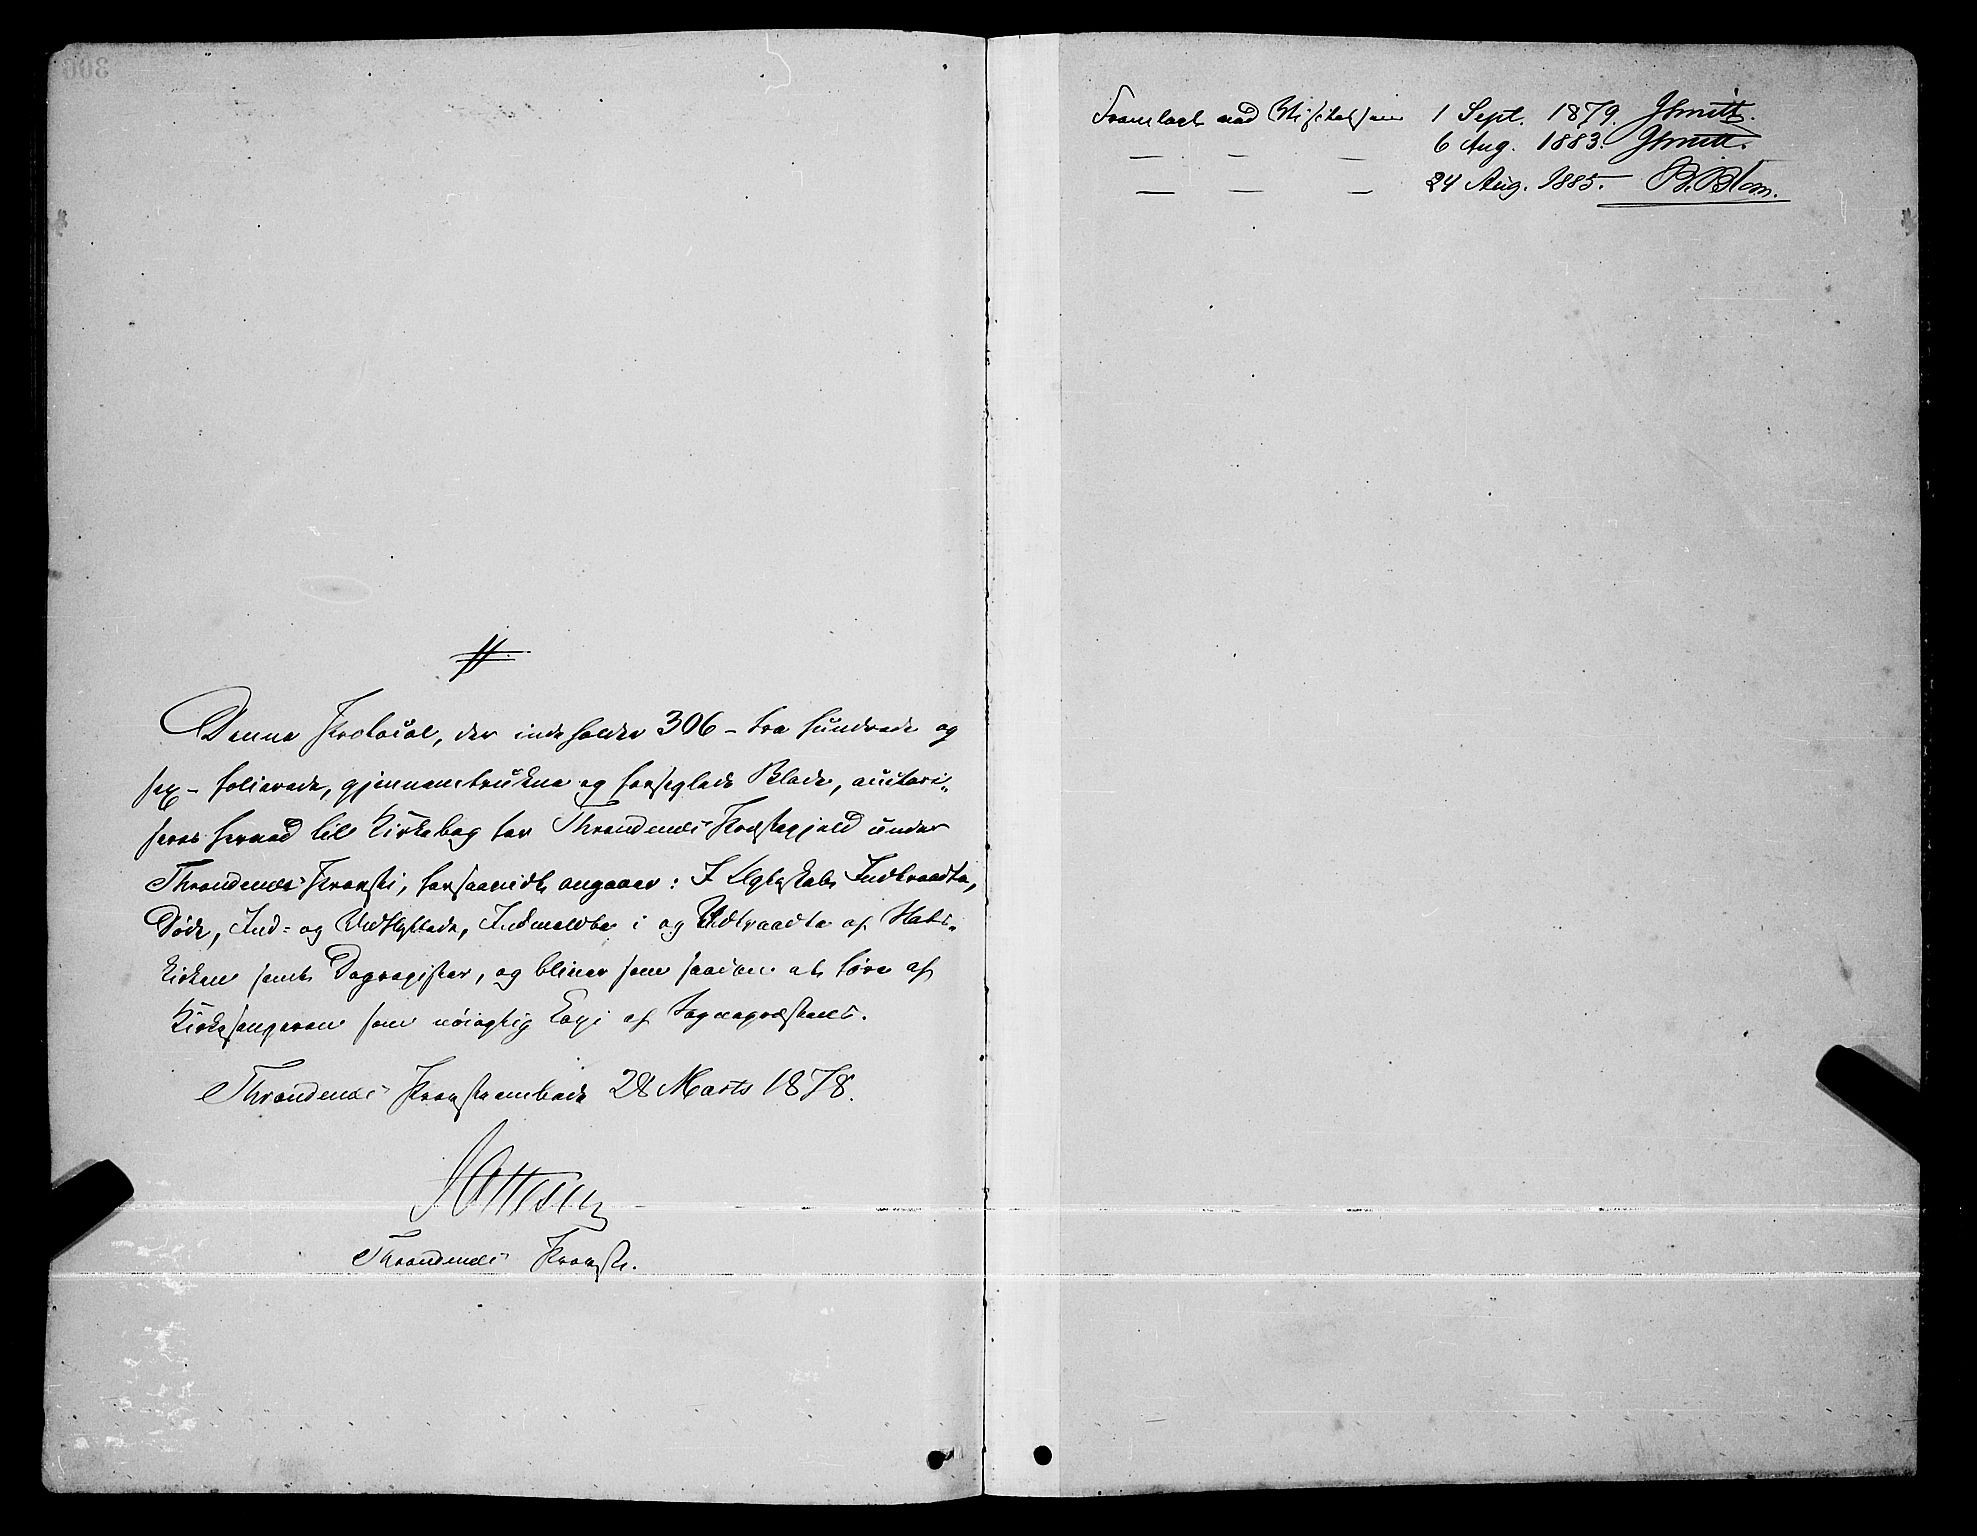 Denne Protocol, der indeholder 306 – tre hundrede og
sex – folierede, gjennemtrukne og forseglede Blade, autori-
seres herved til Kirkebog for Throndenæs Præstegjeld under
Throndenæs Provsti, forsaavidt angaaer: I Ægteskab Indtraadte,
Døde, Ind- og Udflyttede, Indmeldte i og Udtraadte af Stats-
kirken samt Dagregister, og bliver som saadan at føre af
Kirkesangeren som nøiagtig Copi af Sognepræstens.
Throndenæs Provsteembede 28 Marts 1878.
Throndenæs Provsti.
Fremlagt ved Visitatsen 1 Sept. 1879. JSmitt.
— — — 6 Aug. 1883. JSmitt.
— — — 24 Aug. 1885. B. Blom.
306